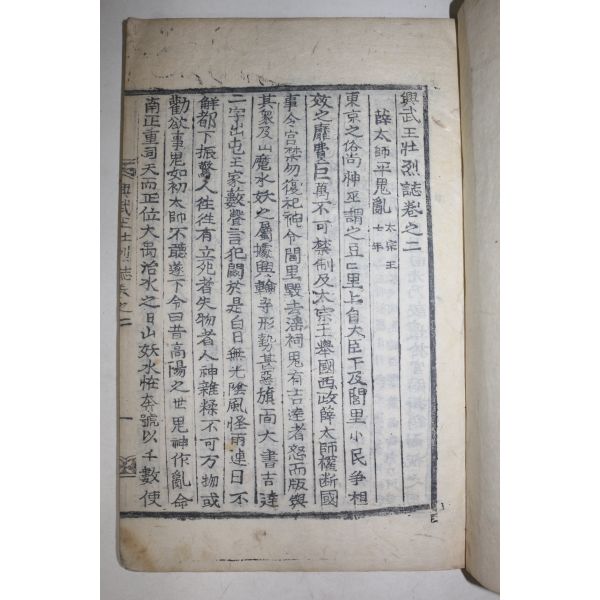 興武王壯烈誌卷之二
薛太師平鬼亂 太宗王七年
東京之俗尚神巫謂之豆豆里上自大臣下及閭里小民爭相
效之靡費巨萬不可禁制及太宗王舉國西政薛太師權斷國
事令宮禁勿復祀神令閭里毀去潘祠鬼有吉達者怒而版與
其衆及山魔水妖之屬據興輪寺形勢甚惡旗面大書吉達
二字出屯王家藪聲言犯闕於是白日無光陰風怪雨連日不
鮮都下振驚人往往有立死者失物者人神雜糅不可方物或
勸欲事鬼如初太師不聽遂下令曰昔高陽之世鬼神作亂命
南正重司天而正位大禹治水之日山妖水怪奔號以千數使
武王壯烈誌卷之二 一